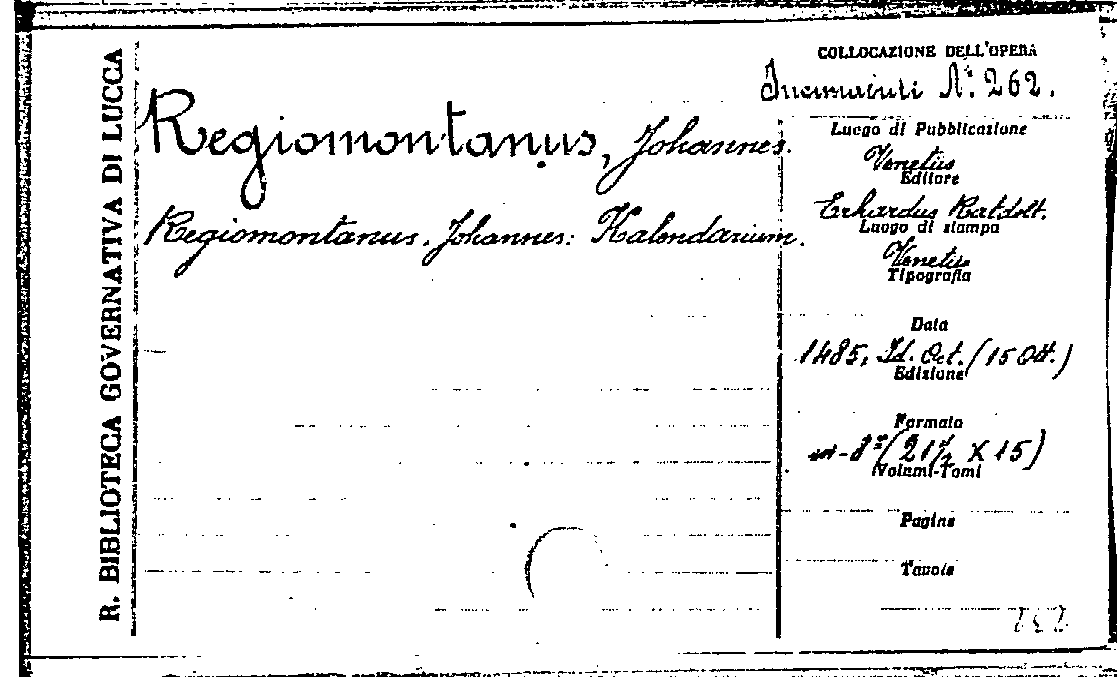 R. BIBLIOTECA GOVERNATIVA DI LUCCA
Regiomontanus, Johannes.
Regiomontanus, Johannes: Kalendarium.
COLLOCAZIONE DELL'OPERA
Incunabuli N.º 262.
Luogo di Pubblicazione
Venetiis
Editore
Erhardus Ratdolt.
Luogo di stampa
Venetiis
Tipografia
Data
1485, Id. Oct. (15 Ott.)
Edizione
Formato
in-8º (21½ X 15)
Volumi-Tomi
Pagine
Tavole